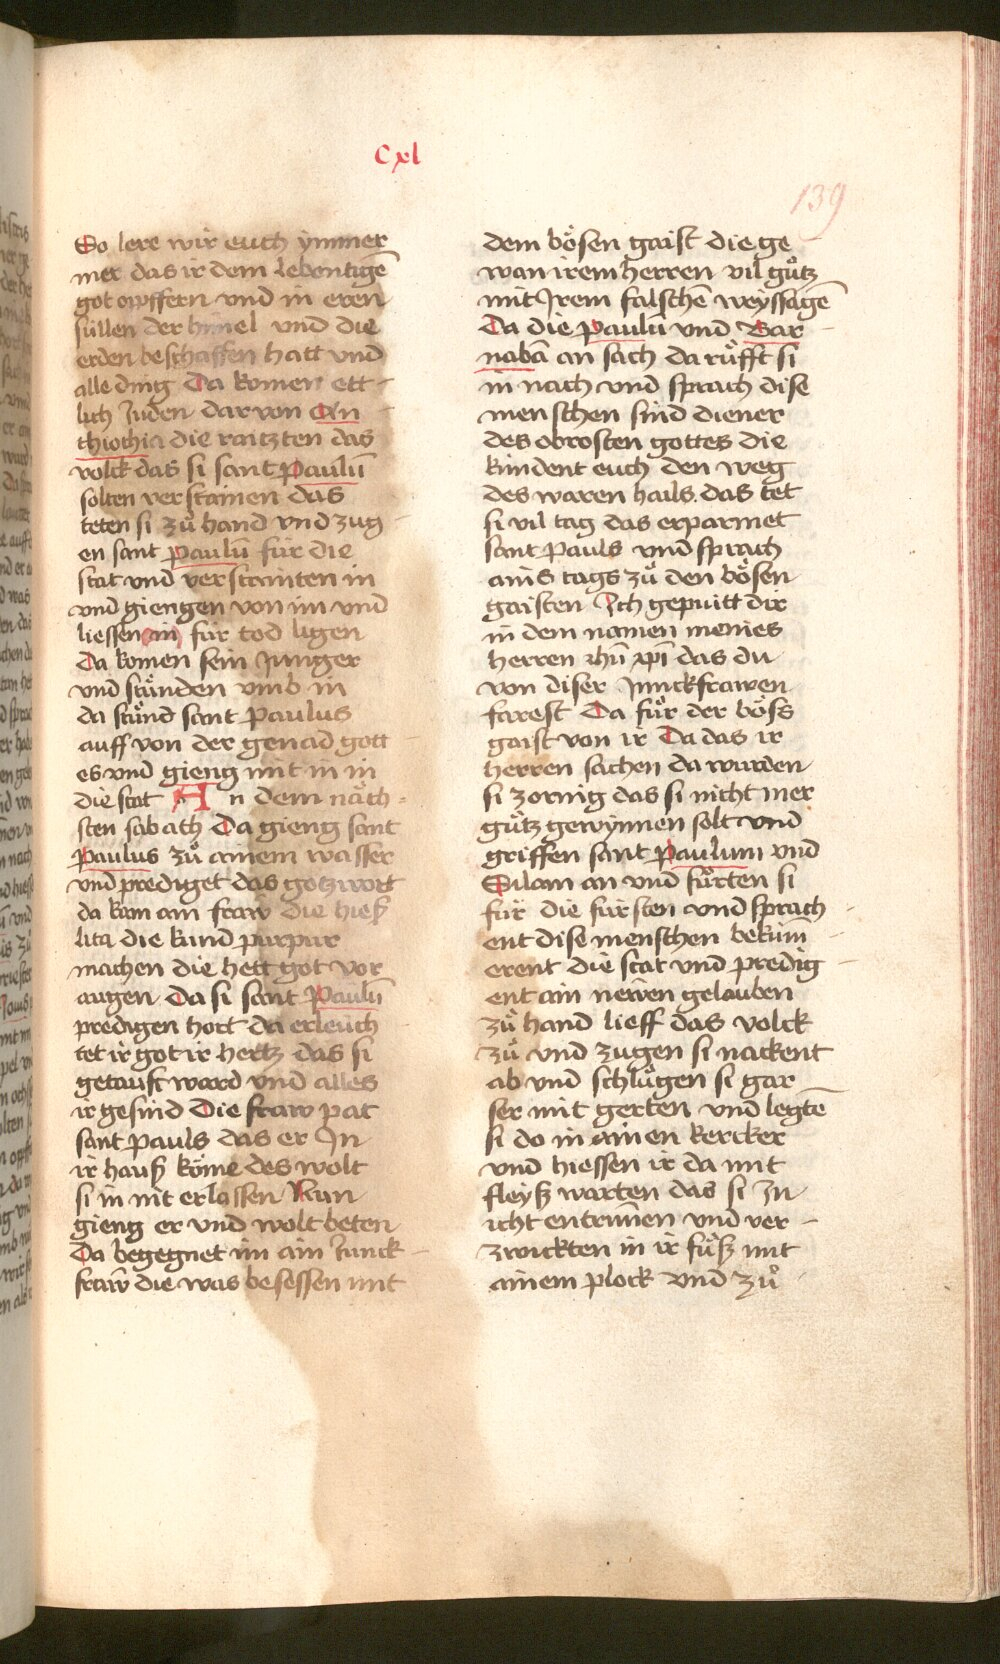 Cxl
139
So lere wir euch ymmer
mer das ir dem lebentigē
got opffern vnd in eren
süllen der himel vnd die
erden beschaffen hatt vnd
alle ding Da komen ett-
lich Juden dar von An
thiochia die raitzten das
volck das si sant Paulū
solten verstainen das
teten si zů hand vnd zug
en sant paulū für die
stat vnd verstainten in
vnd giengen von im vnd
liessen in für tod ligen
Da komen sein Junger
vnd stůnden vmb in
da stůnd sant Paulus
auff von der genad gott
es vnd gieng mit in in
die stat An dem näch-
sten sabath Da gieng sant
Paulus zů ainem wasser
vnd prediget das gotzwort
da kam ain fraw die hieß
lita die kund purpur
machen die hett got vor
augen Da si sant Paulū
predigen hort da erleuch
tet ir got ir hertz das si
getauft ward vnd alles
ir gesind Die fraw pat
sant pauls das er In
ir hauß köme des wolt
si in nit erlassen Nun
gieng er vnd wolt beten
Da begegnet im ain Junck-
fraw die was besessen mit
dem bösen gaist die ge
wan irem herren vil gůtz
mit Irem falschē weyssagē
Da die paulū vnd Bar-
nabā an sach da růfft si
in nach vnd sprach dise
menschen sind diener
des obrosten gottes die
kündent euch den weg
des waren hails. das tet
si vil tag das erparmet
sant pauls vnd sprach
ains tags zů den bösen
gaisten Ich gepuitt dir
in dem namen meines
herren ihū xpī das du
von diser Junckfrawen
farest Da fůr der böss
gaist von ir Da das ir
herren sachen da wurden
si zornig das si nicht mer
gůtz gewynnen solt vnd
griffen sant paulum vnd
Silam an vnd fůrten si
für die fürsten vnd sprach-
ent dise menschen bekūm-
erent die stat vnd predig-
ent ain newen gelauben
zů hand lieff das volck
zů vnd zugen si nackent
ab vnd schlůgen si gar
ser mit gerten vnd legtē
si do in ainen kercker
vnd hiessen ir da mit
fleyß warten das si In
icht entrūnen vnd ver-
zwickten in ir fůß mit
ainem plock vnd zů